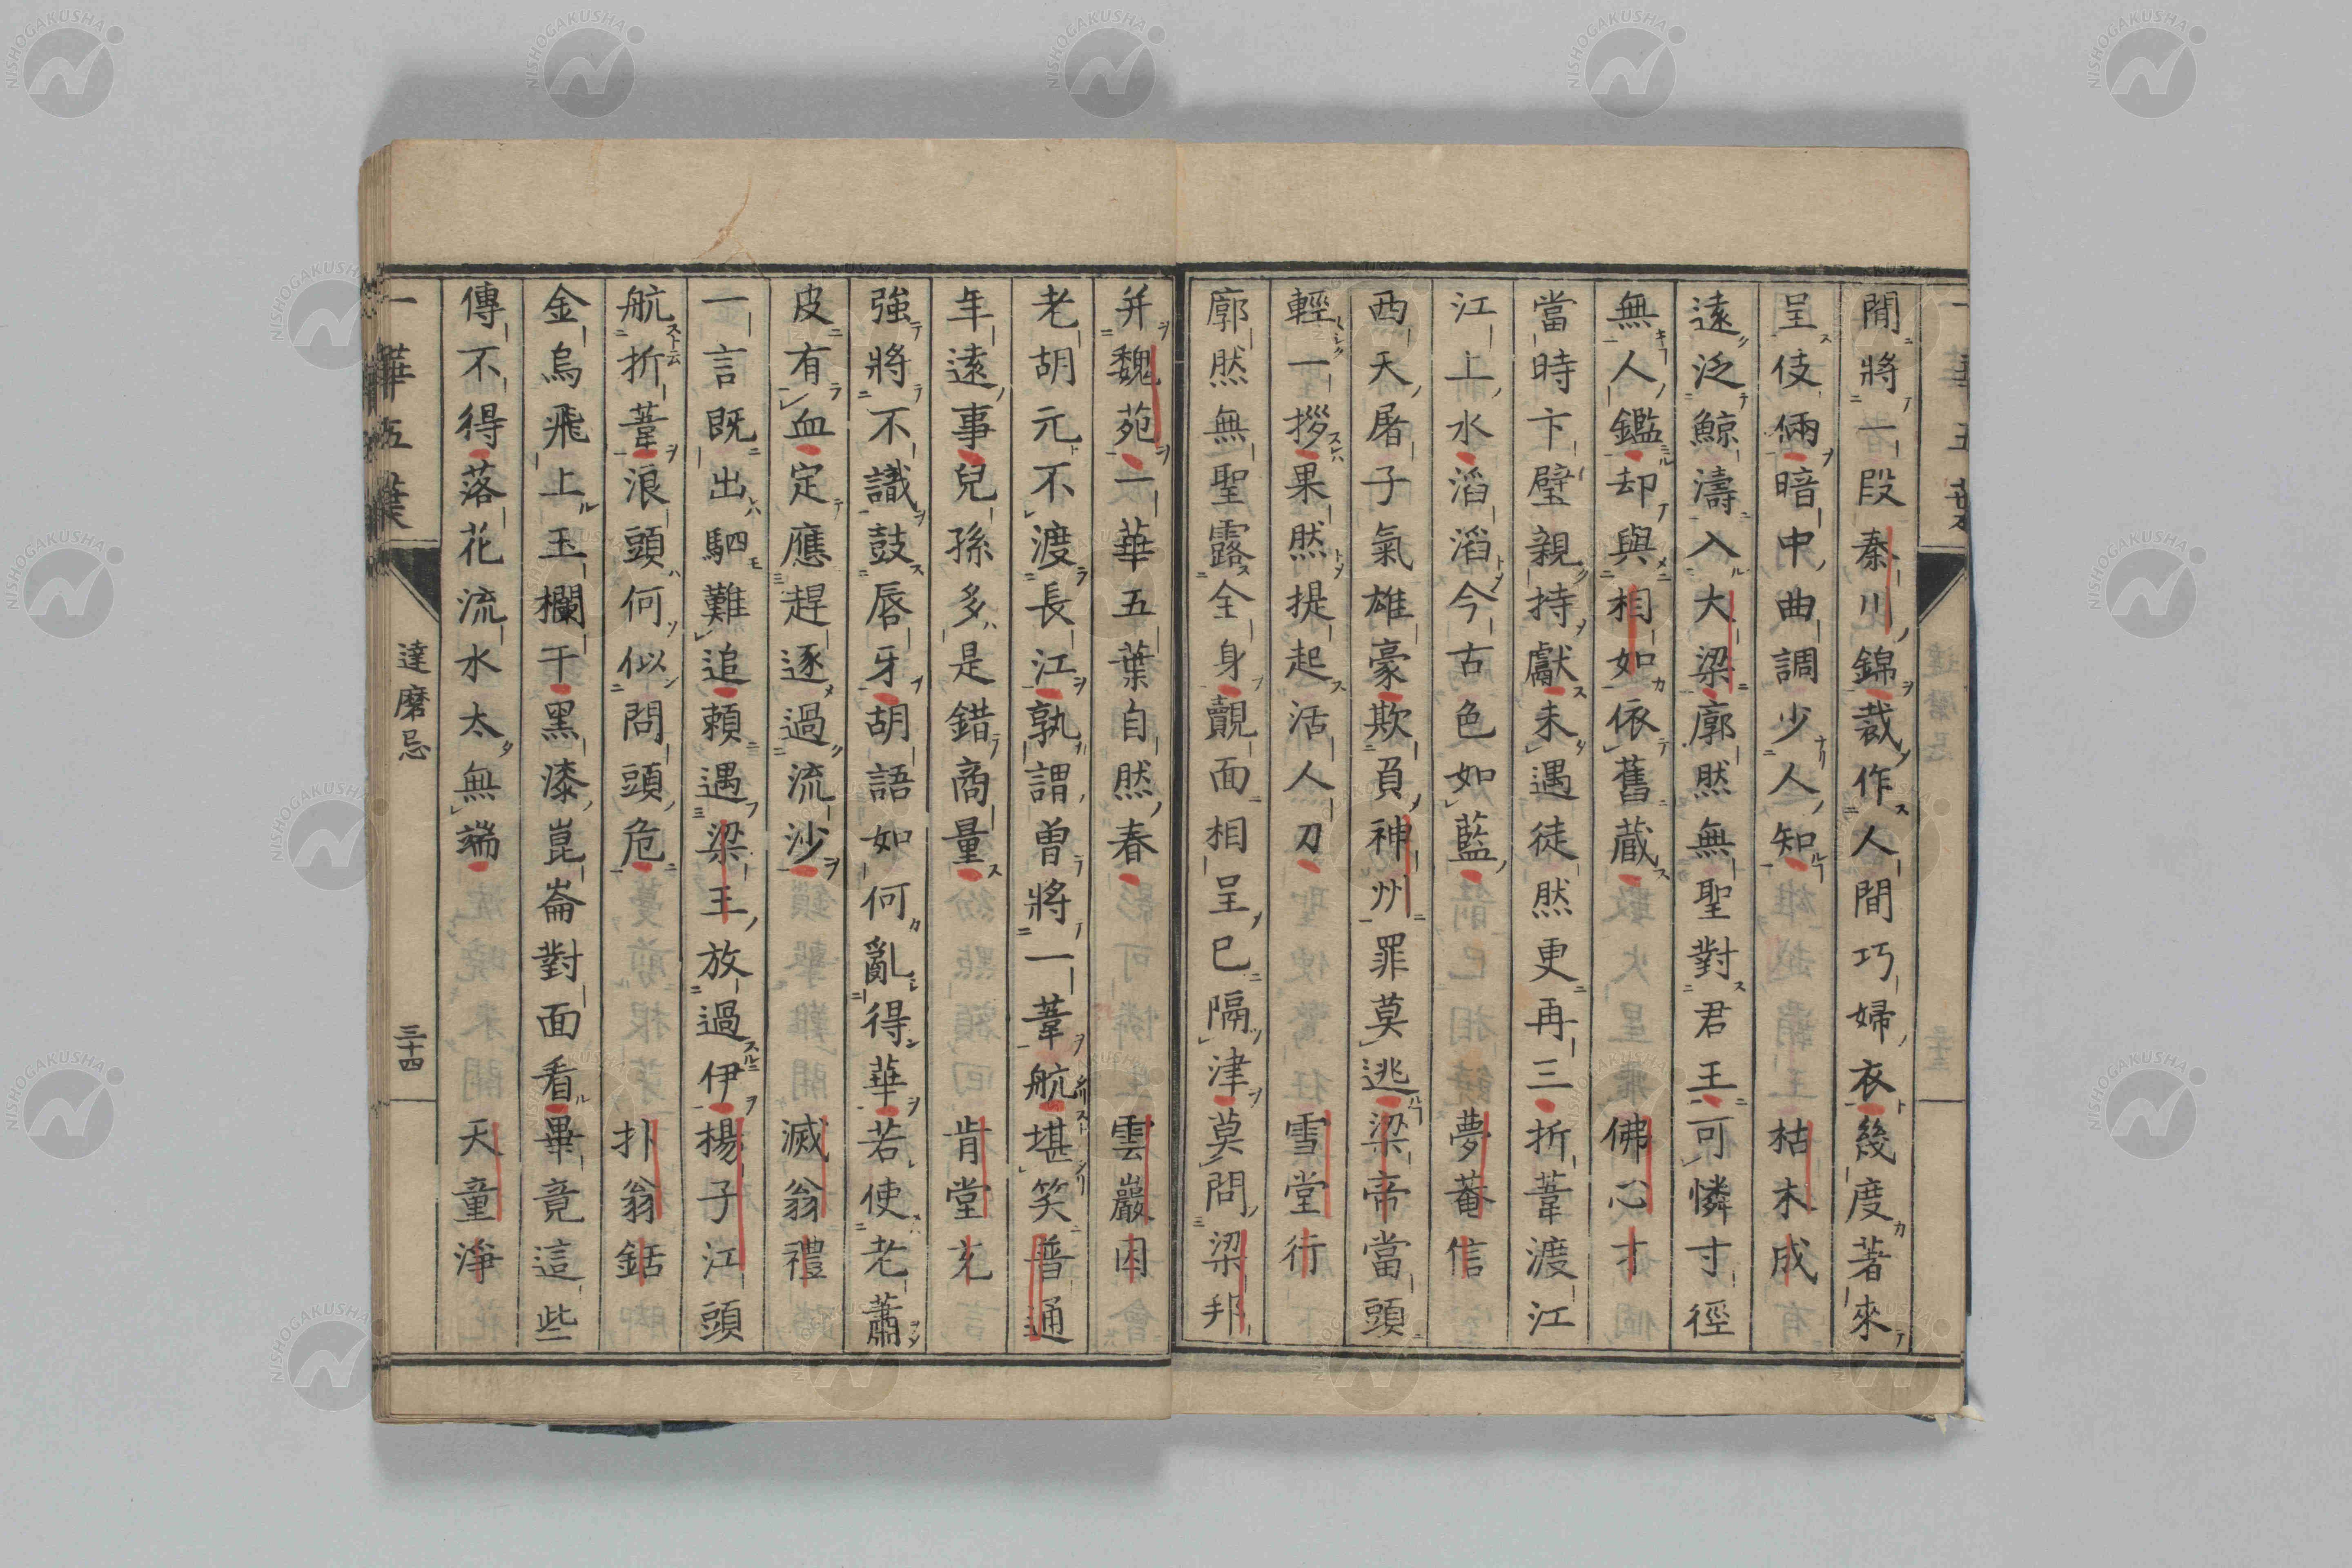 間將一段秦川錦裁作人間巧婦衣幾度著來
呈伎倆暗中曲調少人知 枯木成
遠泛鯨濤入大梁廓然無聖對君王可憐寸徑
無人鑑却與相如依舊蔵 佛心才
當時卞璧親持獻未遇徒然更再三折葦渡江
江上水滔滔今古色如藍 夢菴信
西天屠子氣雄豪欺負神州罪莫逃梁帝當頭
輕一拶果然提起活人刀 雪堂行
廓然無聖露全身覿面相呈已隔津莫問梁邦
并魏苑一華五葉自然春 雲巖因
老胡元不渡長江孰謂曽將一葦航堪笑普通
年遠事兒孫多是錯商量 肯堂充
強將不識鼓唇牙胡語如何亂得華若使老蕭
皮有血定應趕逐過流沙 滅翁禮
一言既出駟難追頼遇梁王放過伊楊子江頭
航折葦浪頭何似問頭危 扑翁銛
金烏飛上玉欄干黑漆崑崙對面看畢竟這些
傳不得落花流水太無端 天童淨
一華五葉
達磨忌
三十四